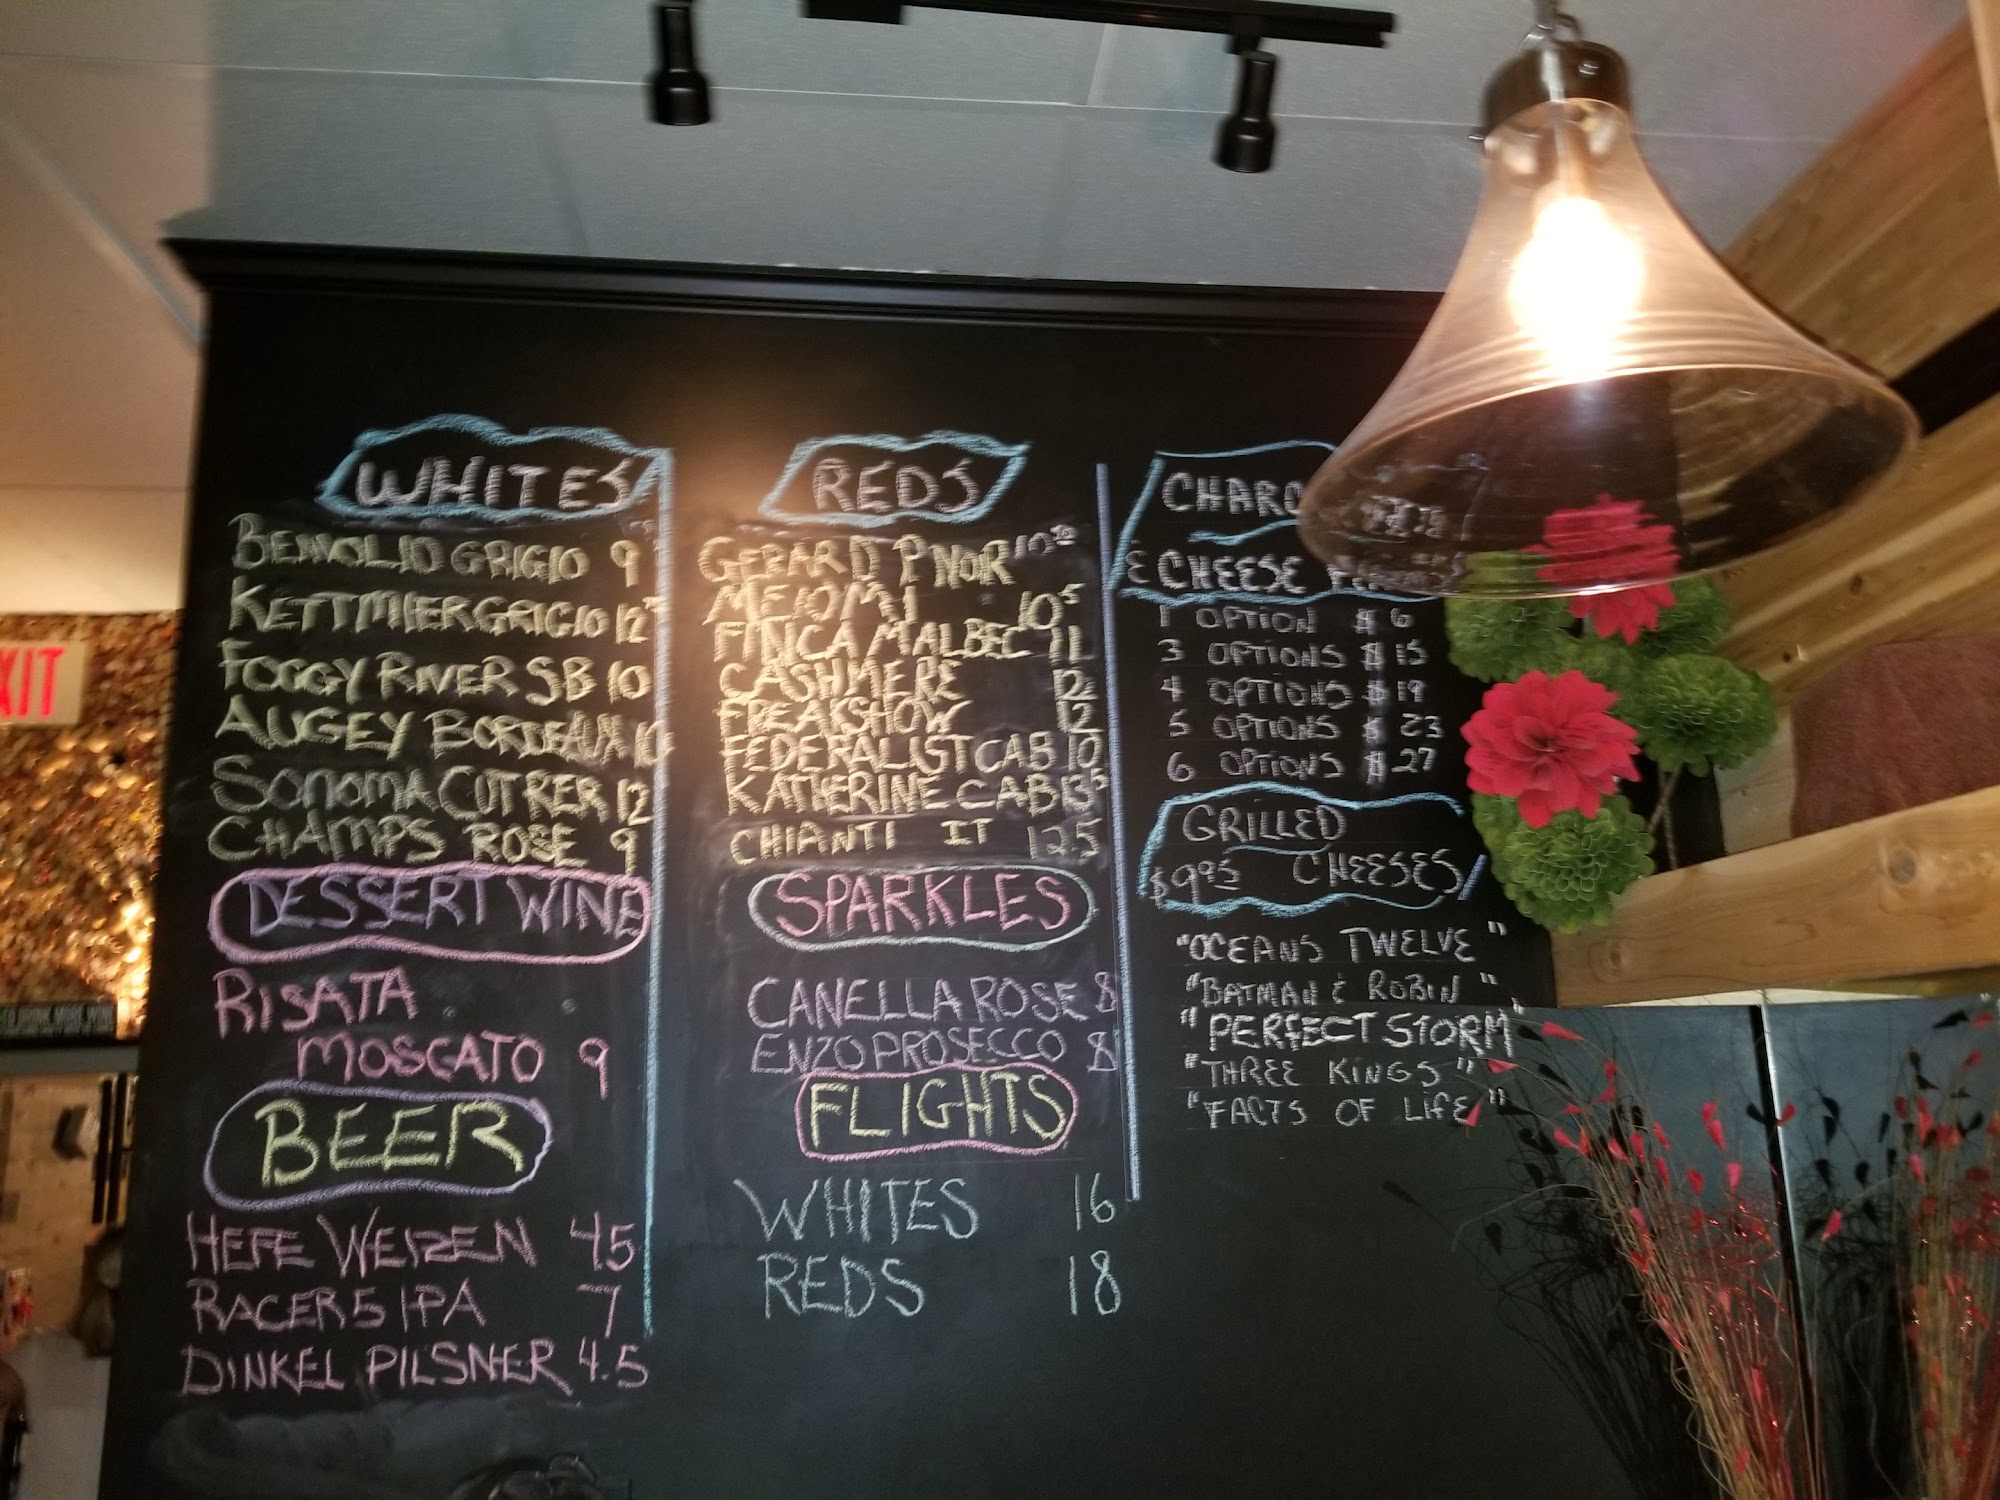 EXIT
WHITES
BENVOLIO GRIGIO 9
KETTMIER GRIGIO 12
FOGGY RIVER SB 10
AUGEY BORDEAUX 10
SONOMA CUTRER 12
CHAMPS ROSE 9
DESSERT WINE
RISATA
MOSCATO 9
BEER
HEFE WEIZEN 4.5
RACER 5 IPA 7
DINKEL PILSNER 4.5
REDS
GERARD P NOIR 10
MEIOMI 10 5
FINCA MALBEC 11
CASHMERE 12
FREAKSHOW 12
FEDERALIST CAB 10
KATHERINE CAB 13 5
CHIANTI IT 12.5
SPARKLES
CANELLA ROSE 8
ENZO PROSECCO 8
FLIGHTS
WHITES 16
REDS 18
CHARC
& CHEESE
1 OPTION $ 6
3 OPTIONS $ 15
4 OPTIONS $ 19
5 OPTIONS $ 23
6 OPTIONS $ 27
GRILLED
$9.95 CHEESES
"OCEANS TWELVE"
"BATMAN & ROBIN"
"PERFECT STORM"
"THREE KINGS"
"FACTS OF LIFE"